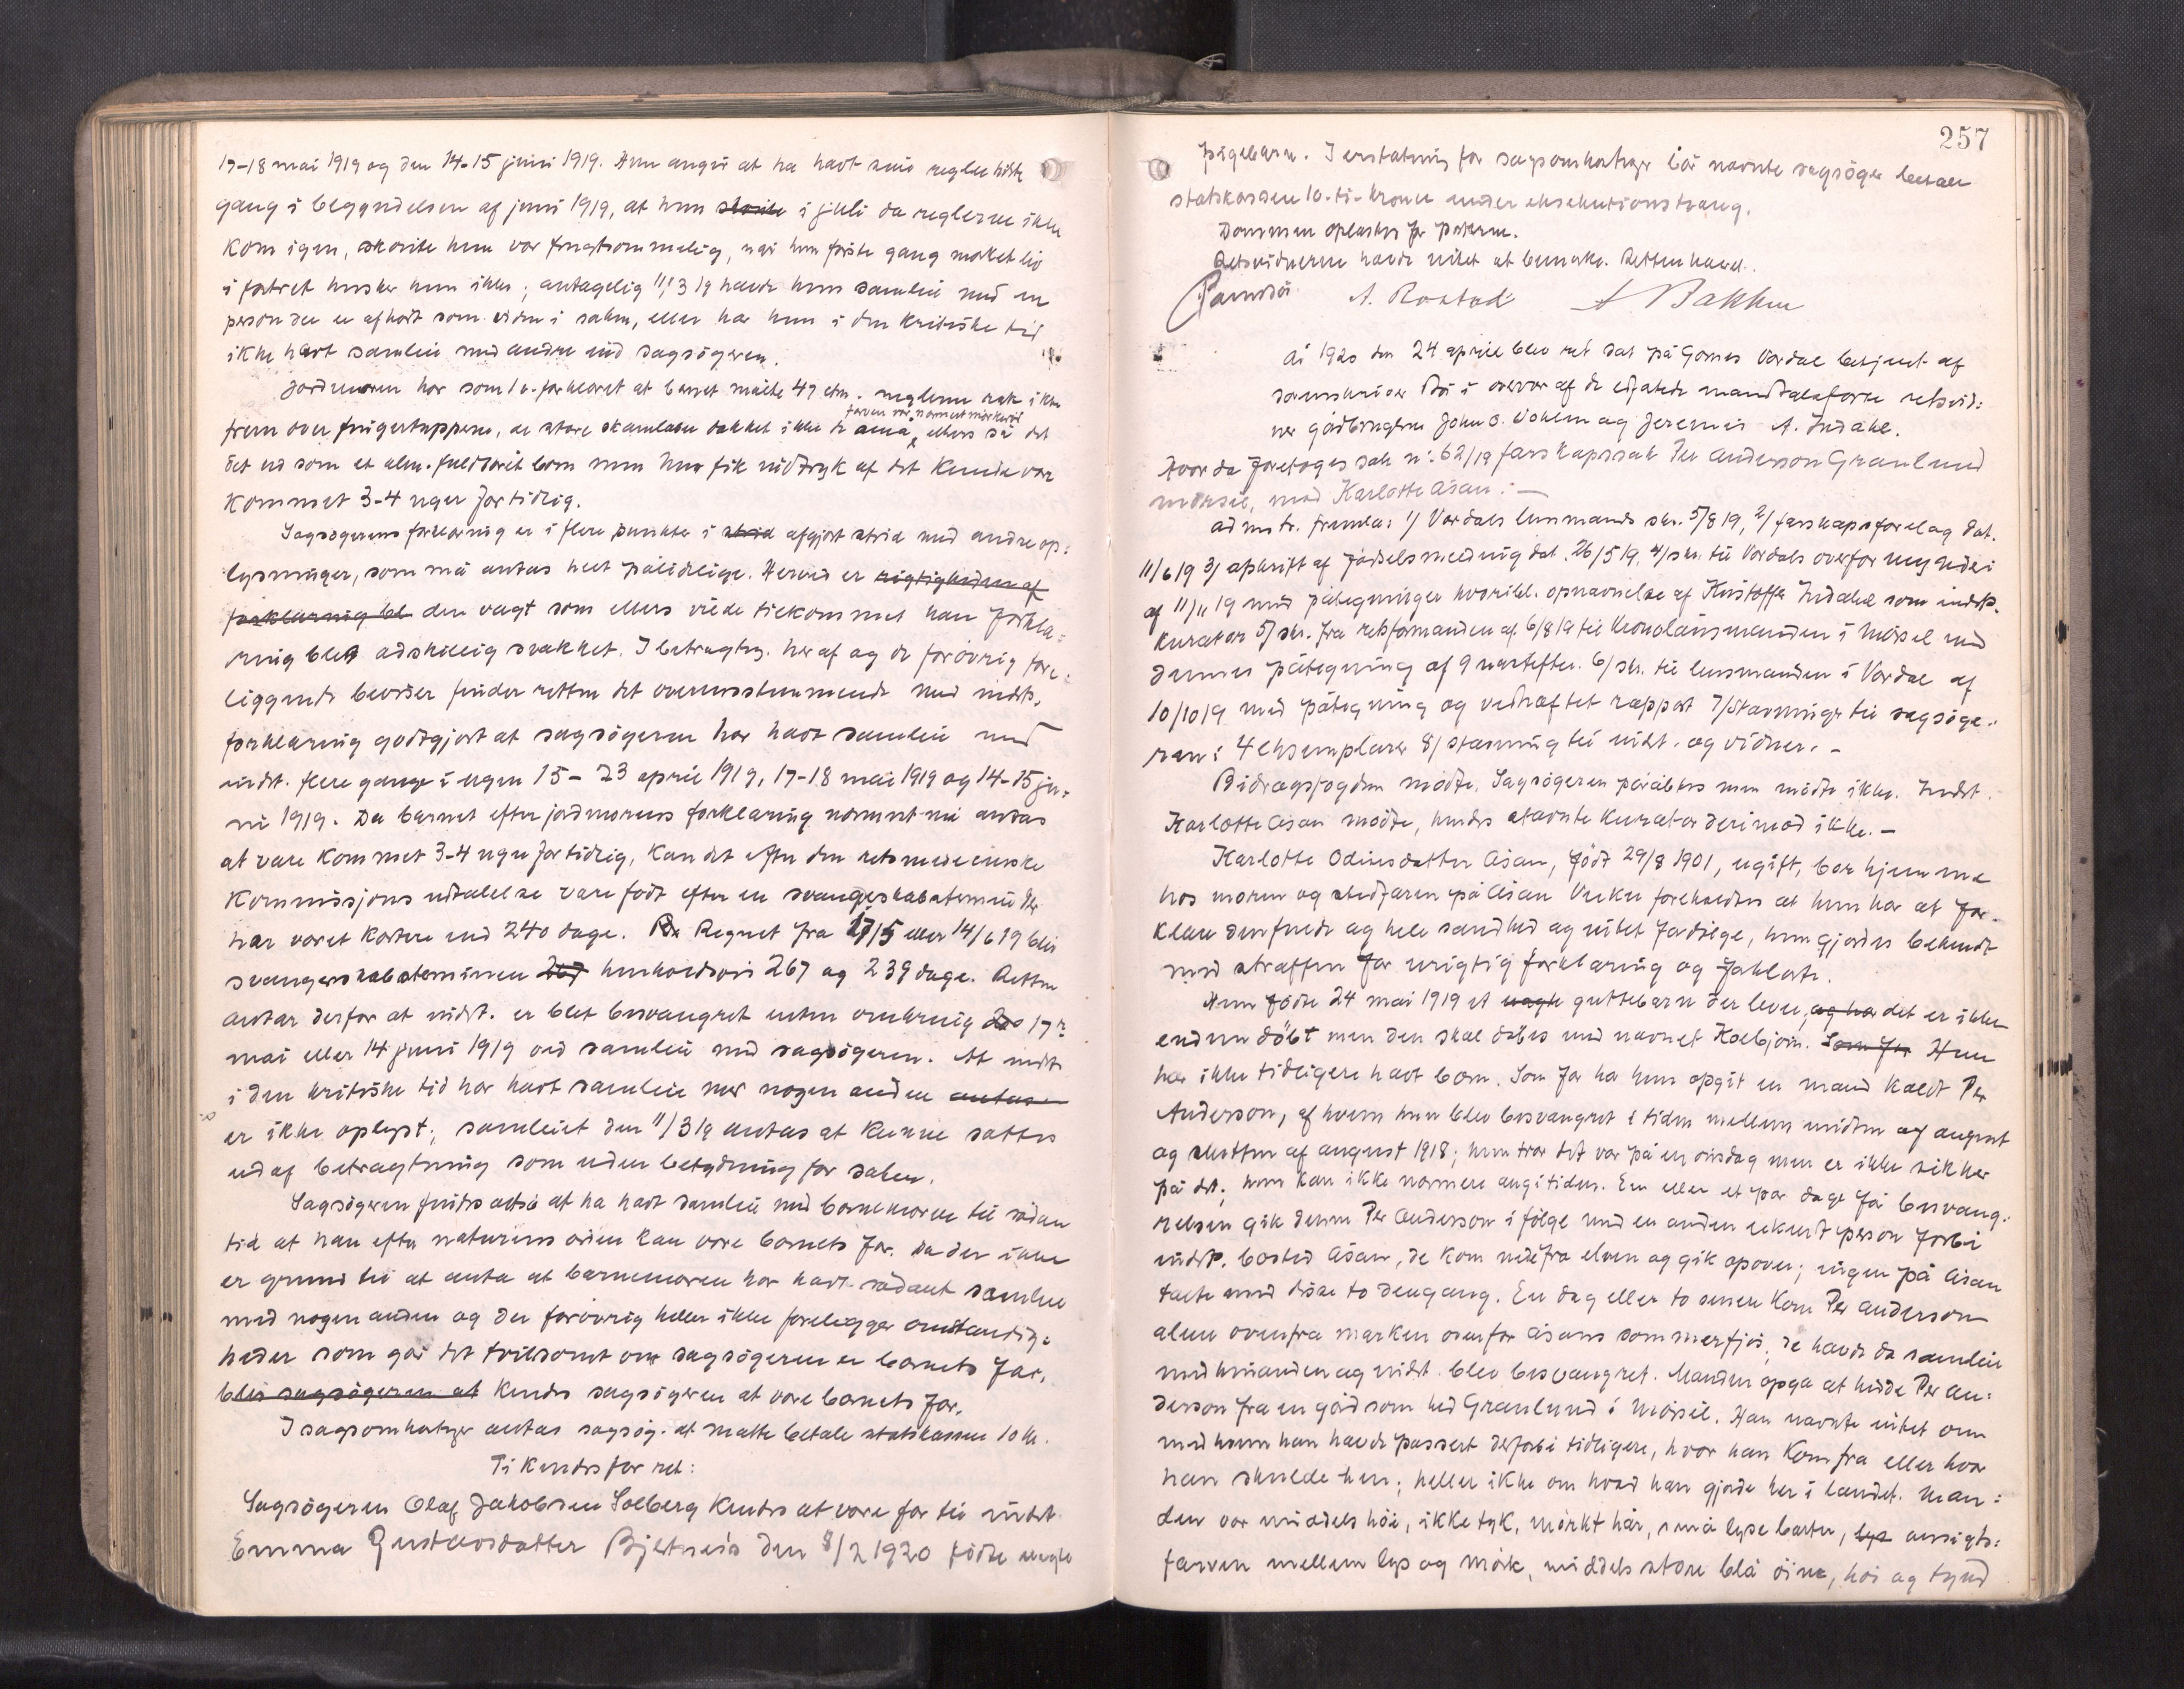 17-18 mai 1919 og den 14-15 juni 1919. Hun angir at ha havt sine regler sidste
gang i begyndelsen af juni 1919, at hun skønte i juli da reglerne ikke
kom igen, skønte hun var frugtsommelig, når hun første gang merket liv
i fostret husker hun ikke; antagelig 11/3 19 havde hun samleie med en
person der er afhørt som vidne i saken, ellers har hun i den kritiske tid
ikke havt samleie med andre end sagsøgeren.
Jordmoren har som 1v. forklaret at barnet målte 47 ctm. neglene rak ikke
farven var nærmest mørkerød
frem over fingertuppene, de store skamlæber dækket ikke de små, ellers så det
det ud som et alm. fuldbårit barn men hun fik indtryk af det kunde være
kommet 3-4 uger for tidlig.
Sagsøgerens forklaring er i flere punkter i strid afgjort strid med andre op:
lysninger, som må antas helt pålidelige. Herved er rigtigheden af
forklaring bl den vægt som ellers vilde tilkommet han forkla:
ring blet adskillig svækket. I betragtn. heraf og de forøvrig fore:
liggende beviser finder retten det overensstemmende med indst.
forklaring godtgjort at sagsøgeren har havt samleie med
indst. flere gange i ugen 15-23 april 1919, 17-18 mai 1919 og 14-15 ju:
ni 1919. Da barnet efter jordmorens forklaring nærmest må antas
at være kommet 3-4 uger for tidlig, kan det efter den retsmedicinske
kommissjons udtalelse være født efter en svangerskabstermin der
har været kortere end 240 dage. Regnet fra 17/5 eller 14/6 19 blir
svangerskabsterminen 267 henholdsvis 267 og 239 dage. Retten
antar derfor at indst. er blet besvangret enten omkring 17de
mai eller 14 juni 1919 ved samleie med sagsøgeren. At indst.
i den kritiske tid har havt samleie med nogen anden antas
er ikke oplyst; samleiet den 11/3 19 antas at kunne sættes
ud af betragtning som uden betydning for saken.
Sagsøgeren findes altså at ha havt samleie med barnemoren til sådan
tid at han efter naturens orden kan være barnets far. Da der ikke
er grund til at anta at barnemoren har havt sådant samleie
med nogen anden og der forøvrig heller ikke foreligger omstændig:
heder som gør det tvilsomt om sagsøgeren er barnets far,
blir sagsøgeren at kendes sagsøgeren at være barnets far.
I sagsomkostnger antas sagsøg. at måtte betale statskassen 10 kr.
Ti kendes for ret:
Sagsøgeren Olaf Jakobsen Solberg kendes at være far til indst.
Emma Gustavsdatter Bjertnæs's den 8/2 1920 fødte uægte
257
pigebarn. I erstatning for sagsomkostnger bør nævnte sagsøger betale
statskassen 10-ti-kroner under eksekutionstvang.
Dommen oplæstes for parterne.
Retsvidnerne havde intet at bemærke. Retten hævet.
A. Rostad A Bakken
År 1920 den 24 april blev ret sat på Garnes Værdal betjent af
sorenskriver i overvær af de edfæstede mandtalsførte retsvid:
ner gårdbrugerne John O. Vohlen og Jeremias A. Indahl.
Hvor da foretoges sak nr. 62/19 farskapssak Per Anderson Granlund
Mörsil, mod Karlotte Åsan: —
Adm str. fremla: 1/ Værdals lensmands skr. 5/8 19, 2/ farskapsforelæg dat.
11/6 19 3/ afskrift af fødselsmelding dat. 26/5 19, 4/ skr. til Værdals overformynderi
af 11/11 19 med påtegninger hvoribl. opnævnelse af Kristoffer Indahl som indst.
kurator 5/ skr. fra retsformanden af 6/8 19 til kronolänsmanden i Mörsil med
dennes påtegning af 9 næstefter. 6/ skr. til lensmanden i Værdal af
10/10 19 med påtegning og vedhæftet rapport 7/ Stævninger til sagsøge:
ren i 4 eksemplarer 8/ stævning til indst. og vidner. -
Bidragsfogden mødte. Sagsøgeren påråbtes men mødte ikke. Indst.
Karlotte Åsan mødte, hendes stævnte kurator derimod ikke. -
Karlotte Odinsdatter Åsan, født 29/8 1901, ugift, bor hjemme
hos moren og stedfaren på Åsan Vuku foreholdtes at hun har at for:
klare den fulde og hele sandhed og intet fordølge, hun gjordes bekendt
med straffen for urigtig forklaring og forklarte.
Hun fødte 24 mai 1919 et uægte guttebarn der lever, og ha det er ikke
endnu döbt men den skal døbes med navnet Kolbjørn. Som far Hun
har ikke tidligere havt barn. Som far ha hun opgit en mand kaldt Per
Anderson, af hvem hun blev besvangret i tiden mellem midten af august
og slutten af august 1918; hun tror det var på en onsdag men er ikke sikker
på det; hun kan ikke nærmere angi tiden. En eller et par dage før besvang:
relsen gik denne Per Anderson i følge med en anden ukendt person forbi
indst. bosted Åsan, de kom nedefra elven og gik opover; ingen på Åsan
talte med disse to dengang. En dag eller to senere kom Per Anderson
alene ovenfra marken ovenfor Åsans sommerfjös, de havde da samleie
med hinanden og indst. blev besvangret. Manden opga at hedde Per An:
derson fra en gård som hed Granlund i Mörsil. Han nævnte intet om
med hvem han havde passert derforbi tidligere, hvor han kom fra eller hvor
han skulde hen; heller ikke om hvad han gjorde her i landet. Man:
den var middels høi, ikke tyk, mørkt hår, små lyse barter, lys ansigts:
farven mellem lys og mørk, middels store blå öine, høi og tynd